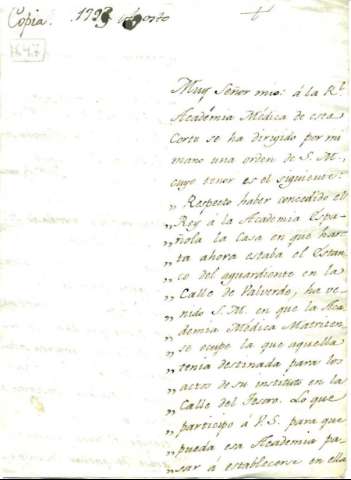 Copia. 1793 Agosto
1647
Muy Señor mio: á la Rl.
Académia Médica de esta
Corte se ha dirigido por mi
mano una orden de S. M.,
cuyo tenor es el siguiente:
„ Respecto haber concedido el
„ Rey á la Academia Espa-
„ ñola la Casa en que has-
„ ta ahora estaba el Estan-
„ co del aguardiente en la
„ Calle de Valverde, ha ve-
„ nido S. M. en que la Aca-
„ demia Médica Matriten-
„ se ocupe la que aquella
„ tenia destinada para los
„ actos de su instituto en la
„ Calle del Tesoro. Lo que
„ participo á V. S. para que
„ pueda esa Academia pa-
„ sar á establecerse en ella